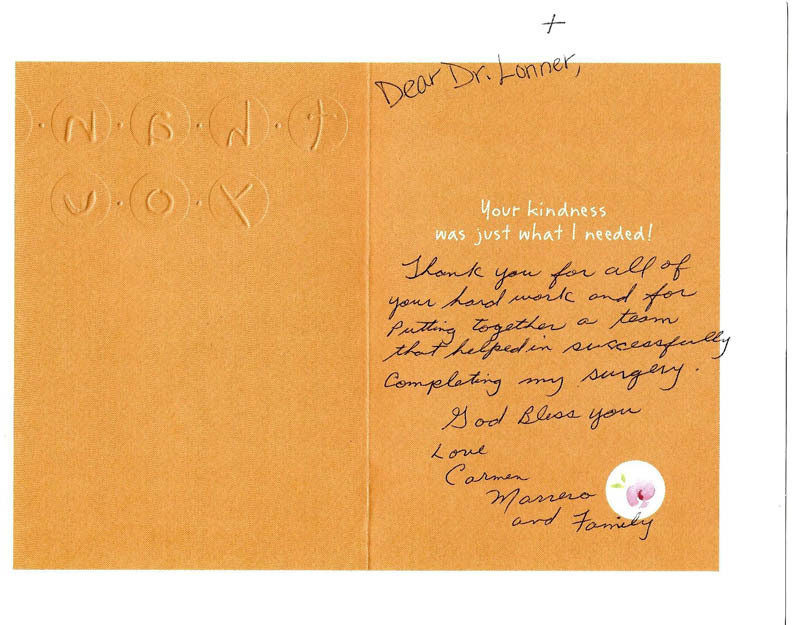 Dear Dr. Lonner,
thank
you
Your kindness
was just what I needed!
Thank you for all of
your hard work and for
Putting together a team
that helped in successfully
Completing my surgery.
God Bless you
Love
Carmen
Marrero
and Family